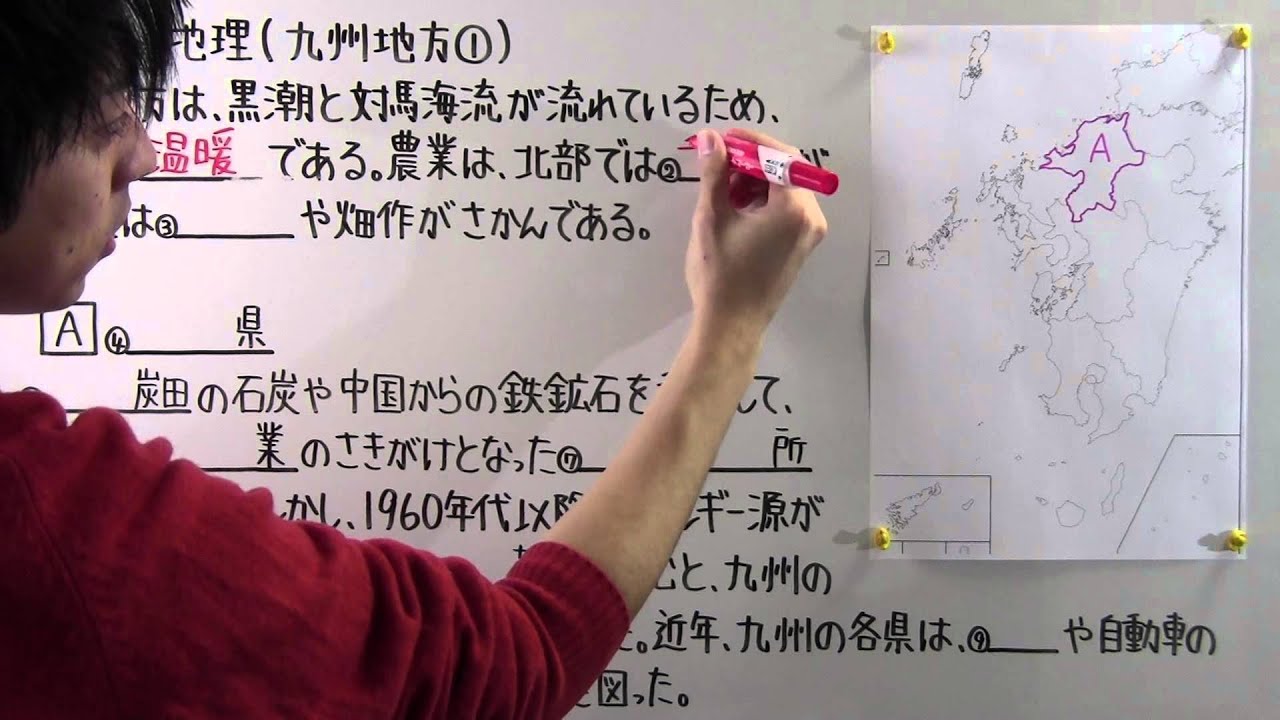 地理(九州地方①)
は、黒潮と対馬海流が流れているため、
温暖 である。農業は、北部では②___が
は③___や畑作がさかんである。
A ④___県
炭田の石炭や中国からの鉄鉱石を して、
業のさきがけとなった⑦___所
かし、1960年代以降 ギー源が
と、九州の
。近年、九州の各県は、⑨___や自動車の
図った。
A